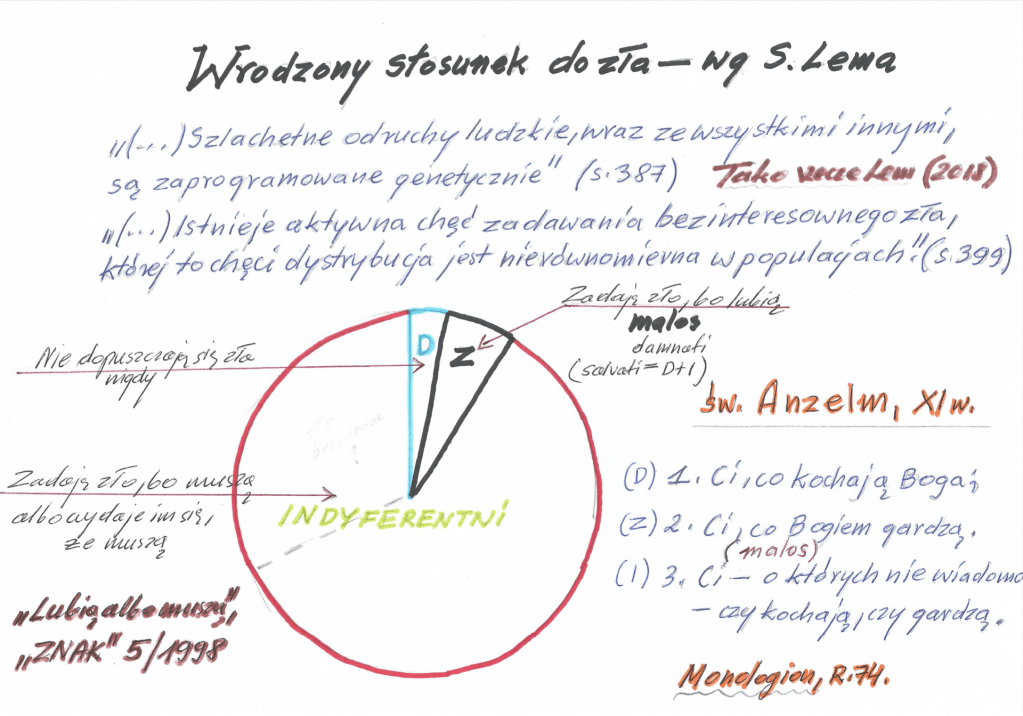 Wrodzony stosunek do zła — wg S. Lema
"(...) Szlachetne odruchy ludzkie, wraz ze wszystkimi innymi,
są zaprogramowane genetycznie" (s. 387) Tako rzecze Lem (2018)
"(...) Istnieje aktywna chęć zadawania bezinteresownego zła,
której to chęci dystrybucja jest nierównomierna w populacjach." (s. 399)
Zadają zło, bo lubią
malos
damnati
(salvati = D+I)
D
Z
Nie dopuszczają się zła
nigdy
św. Anzelm, XI w.
Zadają zło, bo muszą
albo wydaje im się,
że muszą
INDYFERENTNI
(D) 1. Ci, co kochają Boga;
(Z) 2. Ci, co Bogiem gardzą.
(malos)
(I) 3. Ci — o których nie wiadomo
— czy kochają, czy gardzą.
"Lubią albo muszą",
"ZNAK" 5/1998
Monologion, R. 74.